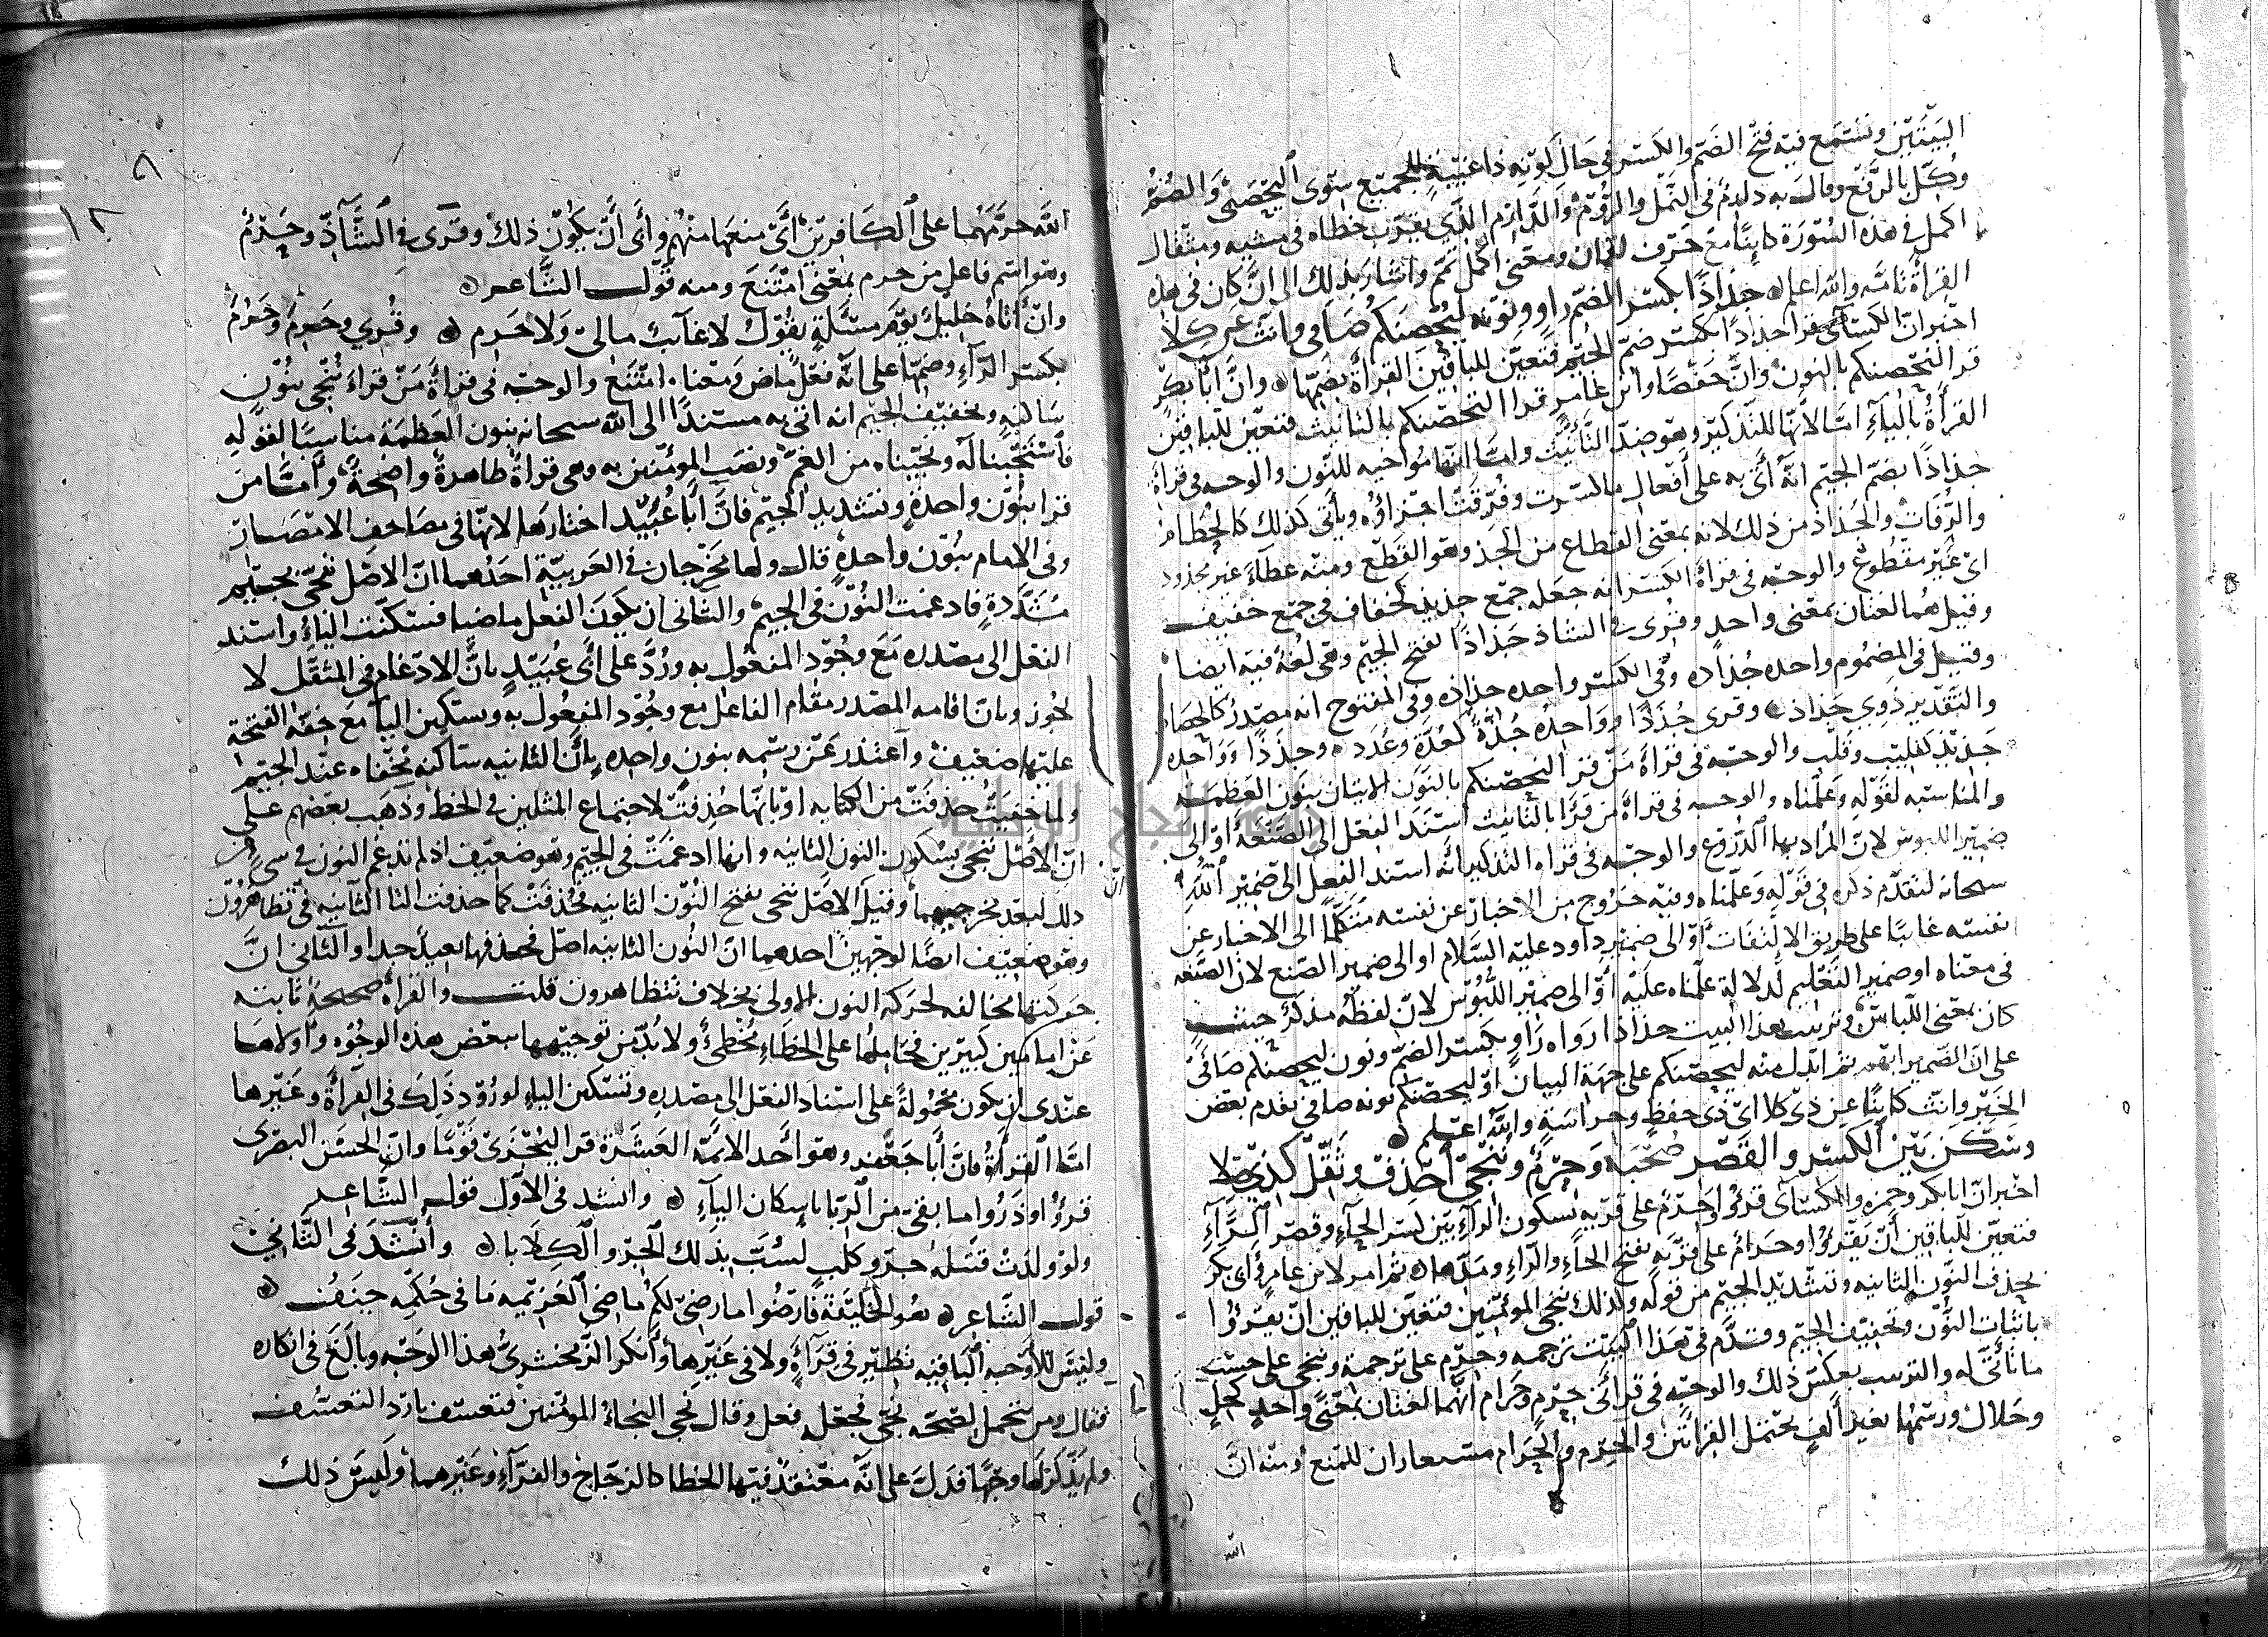 البيتين ونستمع فيه فتح الضم والكسر في حال كونه ذا غيبة للجميع سوى اليحصبي والضم
وكل بالرفع وقال به دلدم في النمل والروم واللازم الذي يقرب خطاه في مشيه ومثقال
اكمل في هذه السورة كاينا مع حرف لقمان ومعنى اكمل تمم واشار بذلك الى ان كان في هذه
القرأة تامة والله اعلم جذاذا بكسر الضم راو ونونه ليحصنكم صافى وانث عن كلا
اخبر ان الكسائي قرا جذاذا بكسر ضم الجيم فتعين للباقين القرأة بضمها وان ابا بكر
قرا لنحصنكم بالنون وان حفصا وابن عامر قرا التحصنكم بالتانيث فتعين للباقين
القرأة بالياء اما لانها للتذكير وهو ضد التأنيث واما انها مواخيه للنون والوجه في قرأة
جذاذا بضم الجيم انه أتى به على أفعال ما كسرت وفرقت اجزاؤه ويأتى كذلك كالحطام
والرفات والجذاذ من ذلك لانه بمعنى القطاع من الجذ وهو القطع ومنه عطآء غير مجذوذ
اي غير مقطوع والوجه في قرأة الكسر انه جعله جمع جذيذ كخفاف في جمع خفيف
وقيل هما لغتان بمعنى واحد وقرى في الشاذ جذاذا بفتح الجيم وهي لغة فيه ايضا
وقيل في المضموم واحده جذاذه وفي الكسر واحده جذاذه وفي المفتوح انه مصدر كالحصاد
والتقدير ذوي جذاذ وقرى جذذا وواحده جذة كغدة وغدد وجذذا وواحده
جذيذ كقليب وقلب والوجه في قرأة من قرا لنحصنكم بالنون الاتيان بنون العظمه
والمناسبه لقوله وعلمناه والوجه في قرأة من قرا بالتانيث اسند الفعل الى الصنعة او الى
ضمير اللبوس لان المراد بها الدروع والوجه في قراه التذكير انه اسند الفعل الى ضمير الله
سبحانه لتقدم ذكره في قوله وعلمناه وفيه خروج من الاخبار عن نفسه متكلما الى الاخبار عن
نفسه غائبا على طريق الالتفات او الى ضمير داود عليه السلام او الى ضمير الصنع لان الصنعه
في معناه او ضمير التعليم لدلالة علمناه عليه أو الى ضمير اللبوس لان لفظه مذكر حيث
كان بمعنى اللباس وترتيب هذا البيت جذاذا رواه راو بكسر الضم ونون ليحصنكم صافى
على ان الضمير ابهم ثم ابدل منه ليحصنكم على جهة البيان او ليحصنكم نونه صافى تقدم بعض
الخبر وانث كاينا عن ذي كلا اي ذي حفظ وحراسة والله اعلم
وسكن بين الكسر والقصر صحبة وحرم وننجي احذف وثقل كذي صلا
اخبر ان ابا بكر وحمزه والكسائى قرؤا وحرم على قريه بسكون الراء بين كسر الحاء وقصر الراء
فتعين للباقين أن يقرؤا وحرام على قرية بفتح الحاء والراء ومدها ثم امر لابن عامر وابي بكر
بحذف النون الثانيه وتشديد الجيم من قوله وكذلك ننجى المؤمنين فتعين للباقين ان يقرؤا
باثبات النون وتخفيف الجيم وقدم في هذا البيت ترجمه وحرم على ترجمة وننجي على حسب
ما تأتى له والترتيب بعكس ذلك والوجه في قرائتى حرم وحرام انهما لغتان بمعنى واحد كحل
وحلال ورسمها بغير ألف يحتمل القرائتين والحرم والحرام مستعاران للمنع ومنه ان
الله
الله حرمهما على الكافرين أى منعها منهم وأبى أن يكون ذلك وقرى في الشآذ وحرم
وهو اسم فاعل من حرم بمعنى امتنع ومنه قول الشاعر
وان أتاه خليل يوم مسئلة يقول لا غآئب مالى ولا حرم وقرى وحرم وحرم
بكسر الرآء وضمها على انه فعل ماض ومعناه امتنع والوجه في قرأة من قراء ننجى بنون
ساكنه وتخفيف الجيم انه اتى به مسندا الى الله سبحانه بنون العظمة مناسبا لقوله
فاستجبنا له ونجيناه من الغم ونصب المؤمنين به وهى قرأة ظاهرة واضحة وأما من
قرا بنون واحدة وتشديد الجيم فان أبا عبيد اختارها لانها في مصاحف الامصار
وفي الامام بنون واحدة قال ولها مخرجان في العربية احدهما ان الاصل ننجي بجيم
مشددة فادغمت النون في الجيم والثانى ان يكون الفعل ماضيا فسكنت الياء واسند
الفعل الى مصدره مع وجود المفعول به ورد على أبى عبيد بان الادغام في المثقل لا
يجوز وبان اقامه المصدر مقام الفاعل مع وجود المفعول به وتسكين الياء مع خفة الفتحة
عليها ضعيف واعتذر عن رسمه بنون واحده بأن الثانيه ساكنه مخفاه عند الجيم
ولما خفيت حذفت من الكتابه او بانها حذفت لاجتماع المثلين في الخط وذهب بعضهم على
ان الاصل ننجي بسكون النون الثانيه وانها ادغمت في الجيم وهو ضعيف اذ لم تدغم النون في شىء من
ذلك لبعد مخرجيهما وقيل الاصل ننجى بفتح النون الثانيه فحذفت كما حذفت التا الثانيه في تظاهرون
وهو ضعيف ايضا لوجهين احدهما ان النون الثانيه اصل فحذفها بعيد جدا والثاني ان
حركتها مخالفه لحركه النون الاولى بخلاف تتظاهرون قلت والقرأة صحيحة ثابته
عن امامين كبيرين فحاملها على الخطاء مخطئ ولا بد من توجيهها ببعض هذه الوجوه وأولاها
عندى ان يكون محمولة على اسناد الفعل الى مصدره وتسكين الياء لورود ذلك في القرأة وغيرها
اما القرأة فان أبا جعفر وهو أحد الائمة العشرة قرا ليجزى قوما وان الحسن البصرى
قرؤا وذروا ما بقى من الربا باسكان الياء وانشد في الأول قول الشاعر
ولو ولدت قفيلة جرو كلب لسب بذلك الجرو الكلابا وأنشد في الثانى
قول الشاعر هو الخليفة فارضوا ما رضى لكم ماضي العزيمه ما في حكمه جنف
وليس للأوجه الباقيه نظير في قرآءة ولا في غيرها وأنكر الزمخشرى هذا الوجه وبالغ في انكاره
فقال ومن تمحل لصحته نجى فجعله فعل وقال نجي النجاء المؤمنين فتعسف بارد التعسف
ولم يذكر لها وجها فدل على انه معتقد فيها الخطا كالزجاج والفرآء وغيرهما وليس ذلك